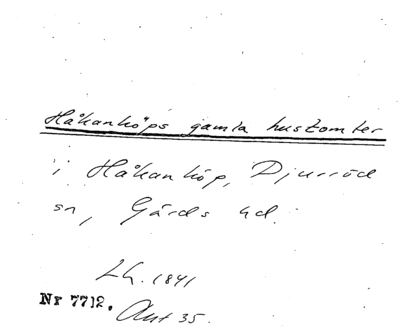 Håkanköps gamla hustomter
i Håkanköp, Djurröd
sn, Gärds hd.
Lh. 1841
Nr 7712. Ant 35.